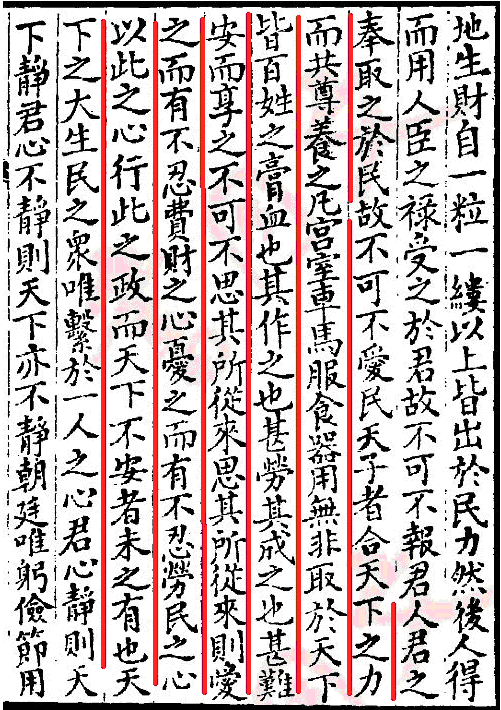 地生財自一粒一縷以上皆出於民力然後人得
而用人臣之祿受之於君故不可不報君人君之
奉取之於民故不可不愛民天子者合天下之力
而共尊養之凡宮室車馬服食器用無非取於天下
皆百姓之膏血也其作之也甚勞其成之也甚難
安而享之不可不思其所從來思其所從來則愛
之而有不忍費財之心憂之而有不忍勞民之心
以此之心行此之政而天下不安者未之有也天
下之大生民之衆唯繫於一人之心君心靜則天
下靜君心不靜則天下亦不靜朝廷唯躬儉節用